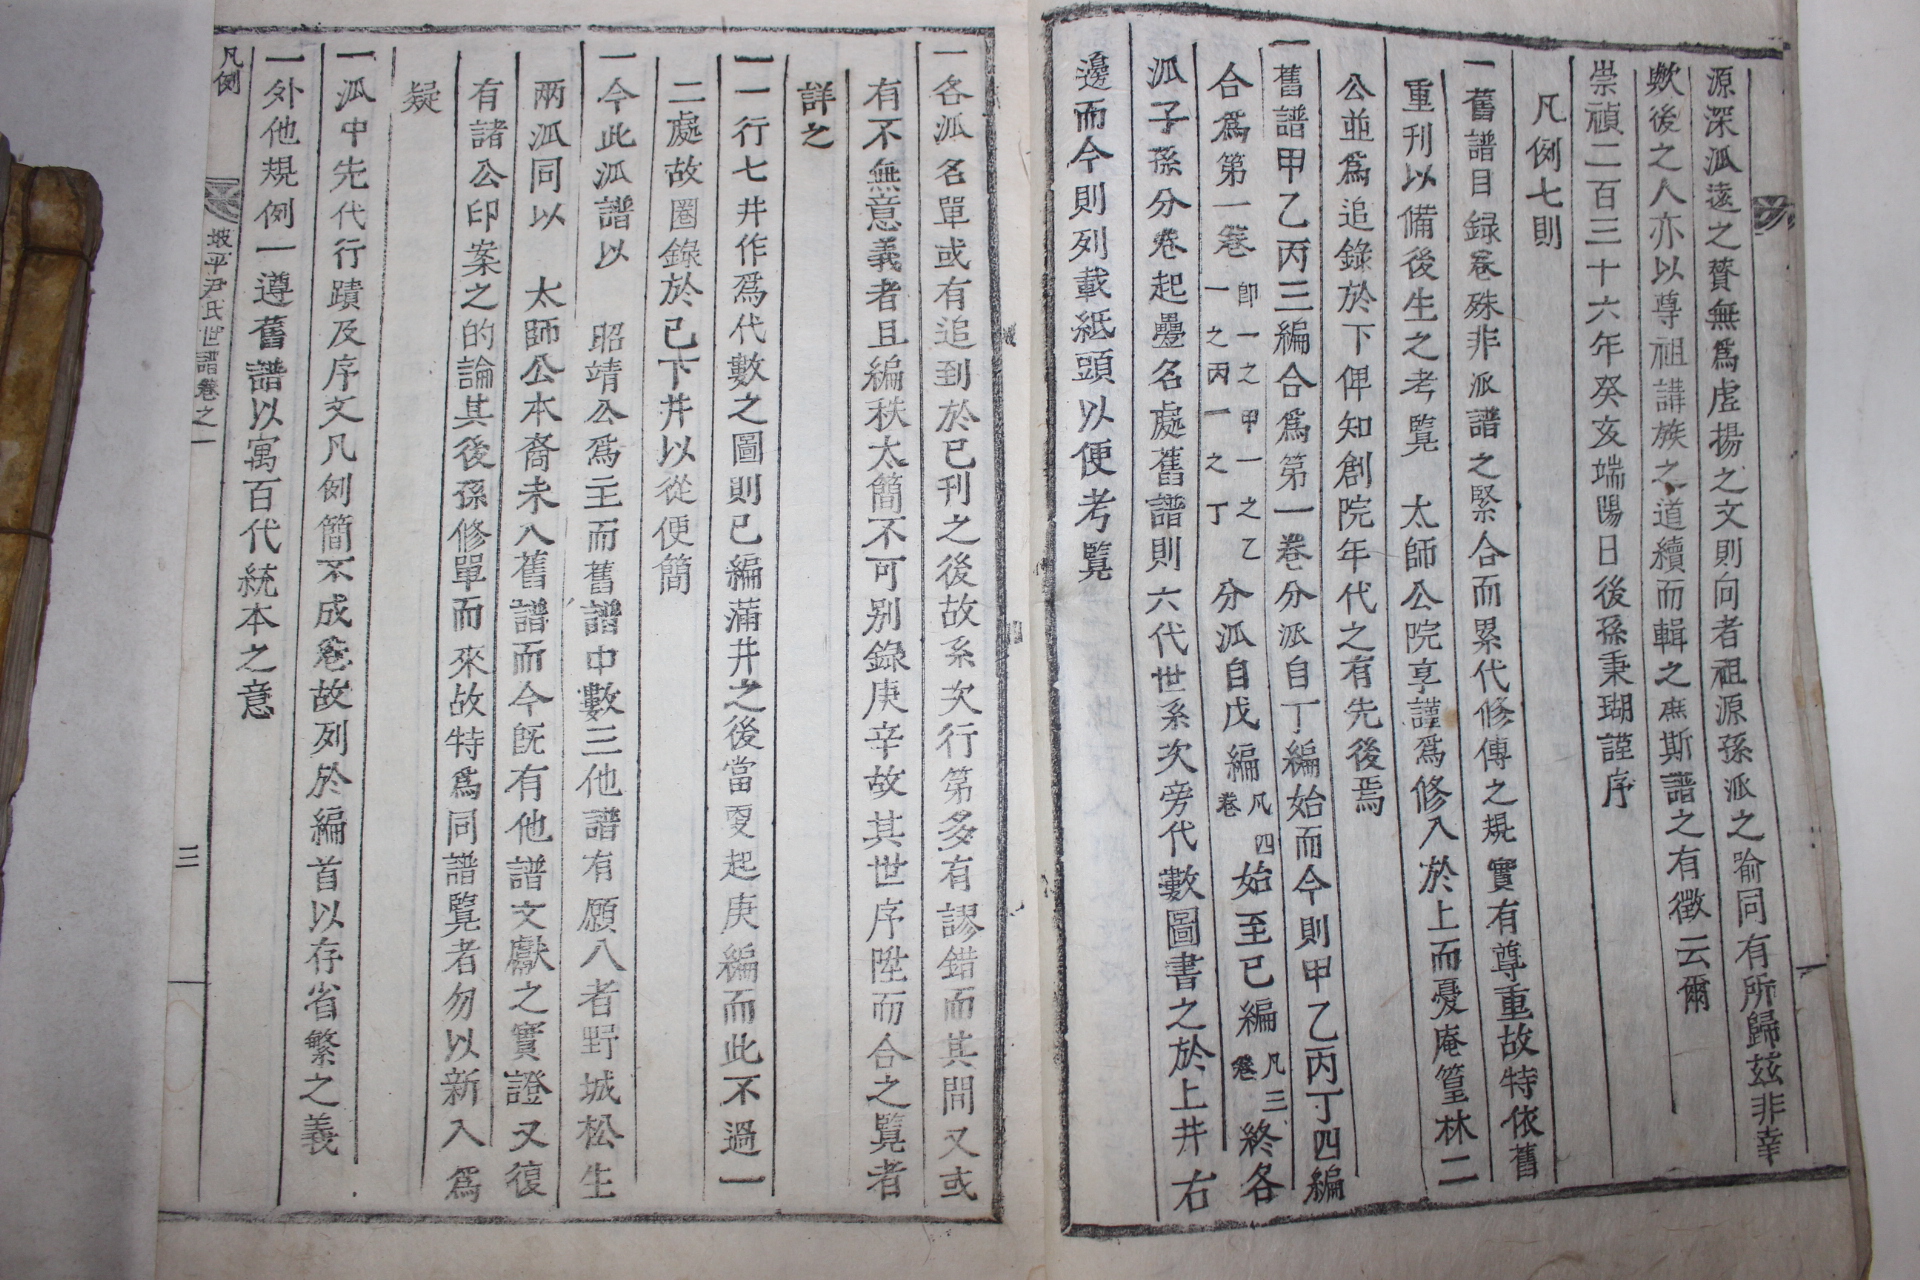 源深派遠之贅無爲虛揚之文則向者祖源孫派之喩同有所歸玆非幸
歟後之人亦以尊祖講族之道續而輯之庶斯譜之有徵云爾
崇禎二百三十六年癸亥端陽日後孫秉瑚謹序
凡例七則
一舊譜目録卷殊非派譜之緊合而累代修傳之規實有尊重故特依舊
重刊以備後生之考覽 太師公院享謹爲修入於上而憂庵篁林二
公並爲追錄於下俾知創院年代之有先後焉
一舊譜甲乙丙三編合爲第一卷分派自丁編始而今則甲乙丙丁四編
合爲第一卷即一之甲一之乙一之丙一之丁分派自戊編凡四卷始至己編凡三卷終各
派子孫分卷起疊名處舊譜則六代世系次旁代數圖書之於上井右
邊而今則列載紙頭以便考覽
一各派名單或有追到於已刊之後故系次行第多有謬錯而其間又或
有不無意義者且編秩太簡不可別錄庚辛故其世序陞而合之覽者
詳之
一一行七井作爲代數之圖則已編滿井之後當更起庚編而此不過一
二處故圈錄於已下井以從便簡
一今此派譜以 昭靖公爲主而舊譜中數三他譜有願入者野城松生
兩派同以 太師公本裔未入舊譜而今旣有他譜文獻之實證又復
有諸公印案之的論其後孫修單而來故特爲同譜覽者勿以新入爲
疑
一派中先代行蹟及序文凡例簡不成卷故列於編首以存省繁之義
一外他規例一遵舊譜以寓百代統本之意
凡例
坡平尹氏世譜卷之一
三